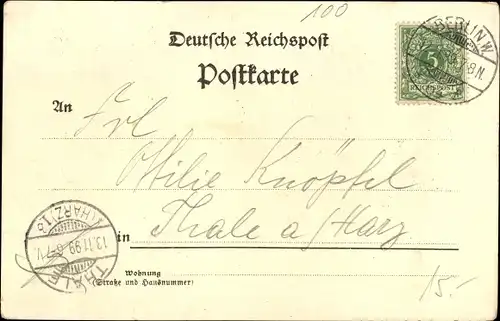 100
Deutsche Reichspost
Postkarte
5
REICHSPOST
BERLIN W.
8 N.
An
Frl
Ottilie Knöpfel
in Thale a/Harz
THALE
13.11.99
6-7 V.
(HARZ) 1 a
Wohnung
(Straße und Hausnummer)
15.-